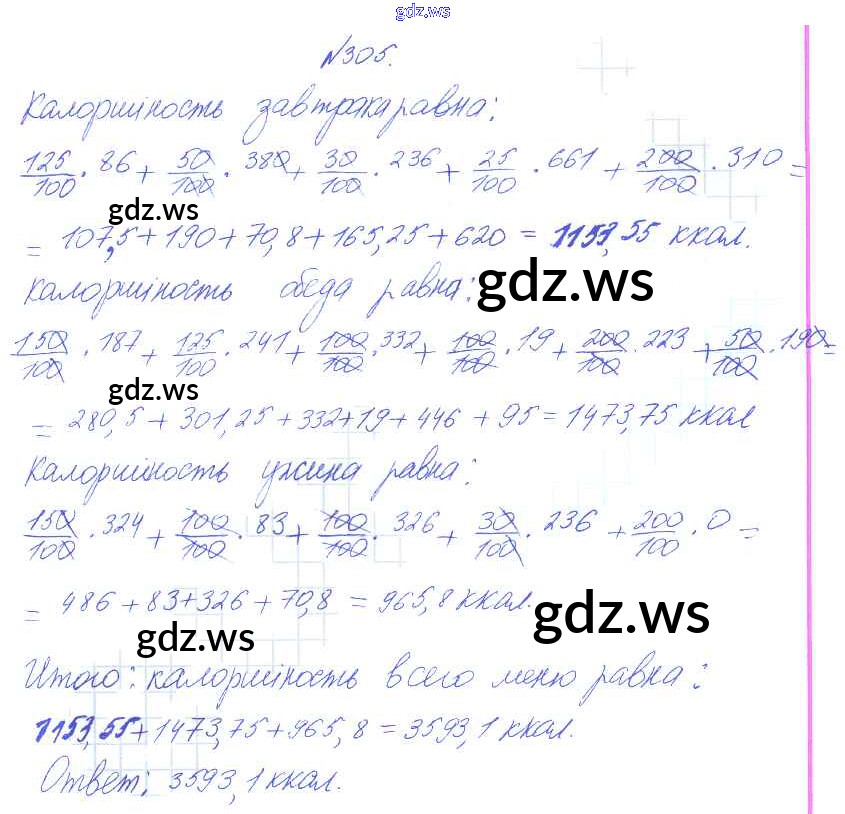 gdz.ws
№305.
Калорийность завтрака равна:
125/100 · 86 + 50/100 · 380 + 30/100 · 236 + 25/100 · 661 + 200/100 · 310 =
gdz.ws
= 107,5 + 190 + 70,8 + 165,25 + 620 = 1153,55 ккал.
Калорийность обеда равна:
gdz.ws
150/100 · 187 + 125/100 · 241 + 100/100 · 332 + 100/100 · 19 + 200/100 · 223 + 50/100 · 190 =
gdz.ws
= 280,5 + 301,25 + 332 + 19 + 446 + 95 = 1473,75 ккал
Калорийность ужина равна:
150/100 · 324 + 100/100 · 83 + 100/100 · 326 + 30/100 · 236 + 200/100 · 0 =
= 486 + 83 + 326 + 70,8 = 965,8 ккал.
gdz.ws
gdz.ws
Итого: калорийность всего меню равна:
1153,55 + 1473,75 + 965,8 = 3593,1 ккал.
Ответ: 3593,1 ккал.